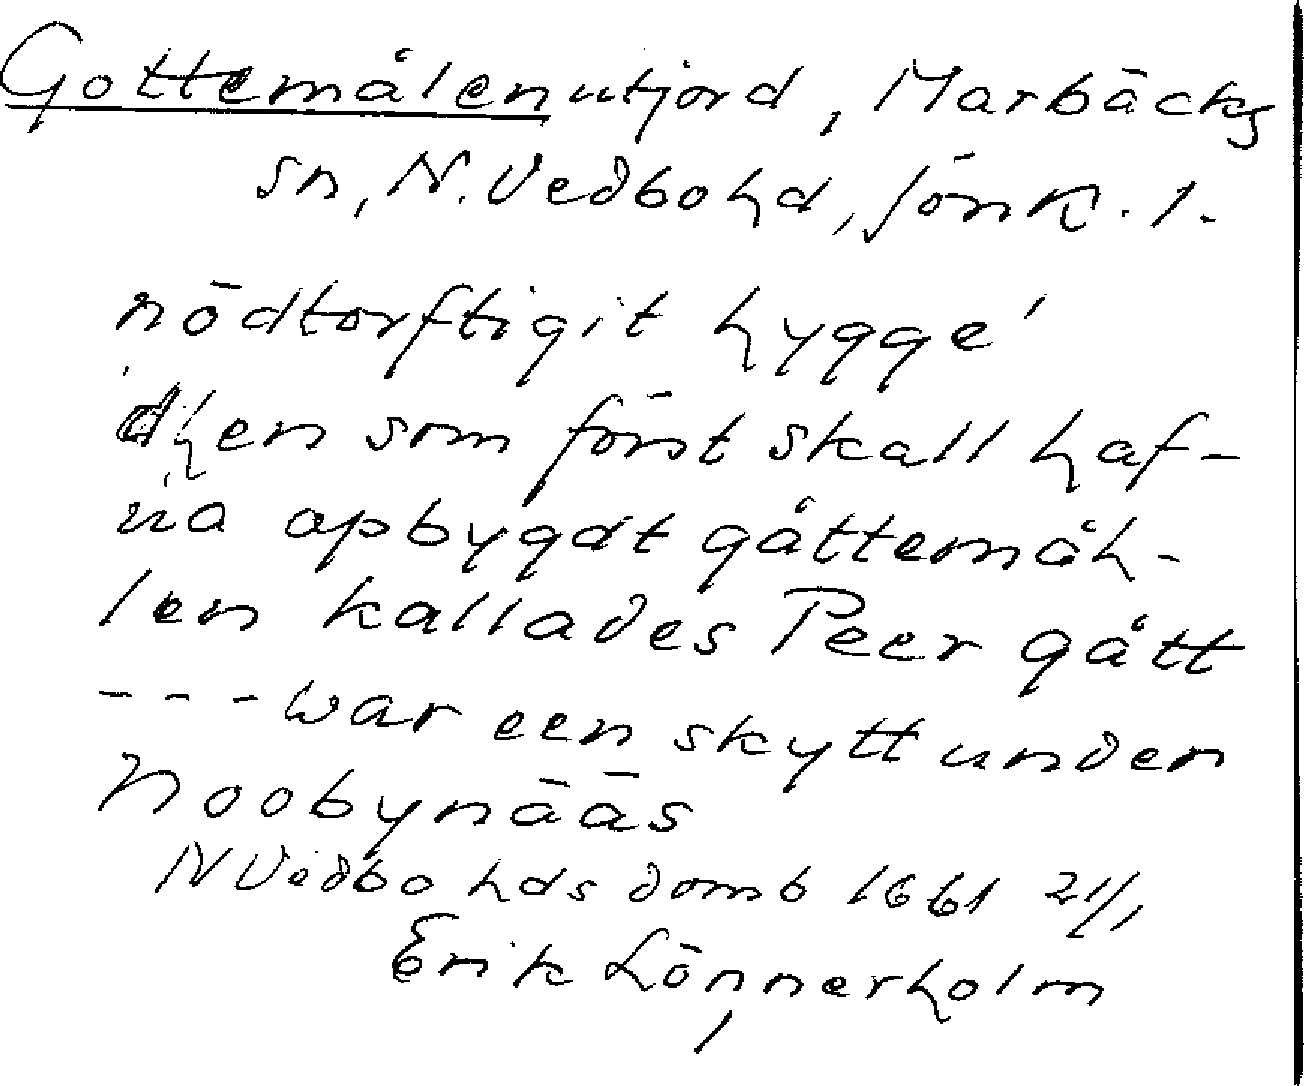 Gottemålen utjord, Marbäcks
sn, N. Vedbo hd, Jönk. l.
nödtorftigit hygge'
dhen som först skall haf-
ua apbygdt gåttemåh-
len kallades Peer gått
--- war een skytt under
Noobynääs
N Vedbo hds domb 1661 21/1
Erik Lönnerholm